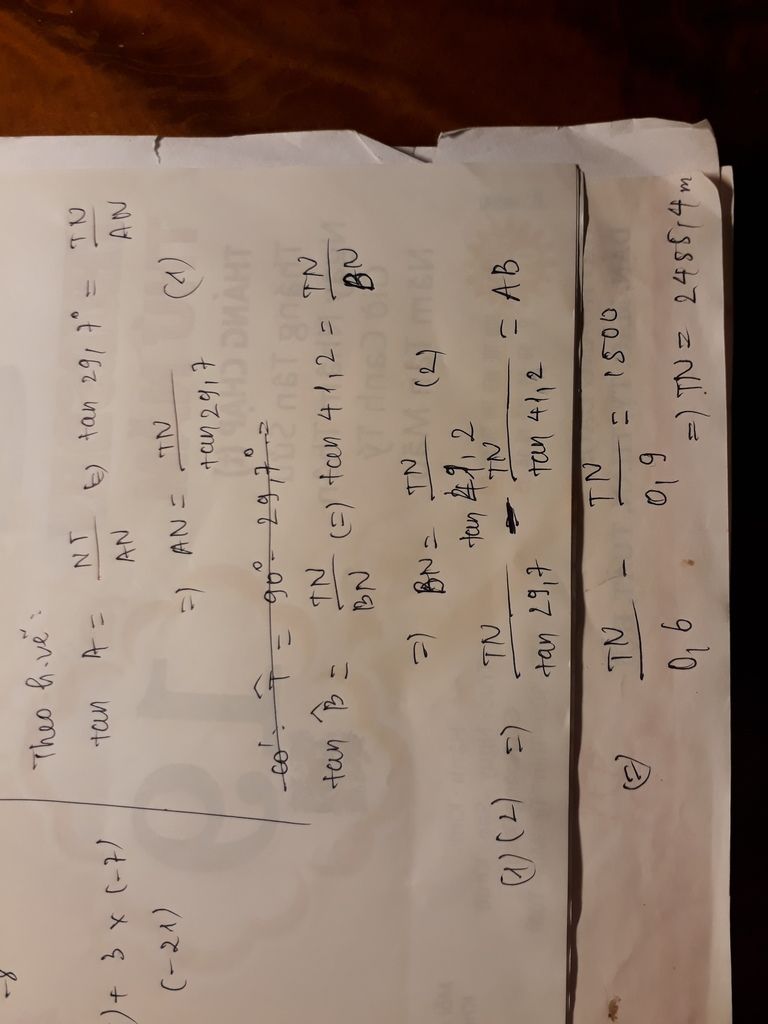 Theo h.vẽ:
tan A = NT/AN (=) tan 29,7° = TN/AN
=) AN = TN/tan 29,7 (1)
có: T̂ = 90° - 29,7° =
tan B̂ = TN/BN (=) tan 41,2 = TN/BN
=) BN = TN/tan 41,2 (2)
(1) (2) =) TN/tan 29,7 - TN/tan 41,2 = AB
(=) TN/0,6 - TN/0,9 = 1500
=) TN = 2455,4 m
-8
) + 3 x (-7)
(-21)